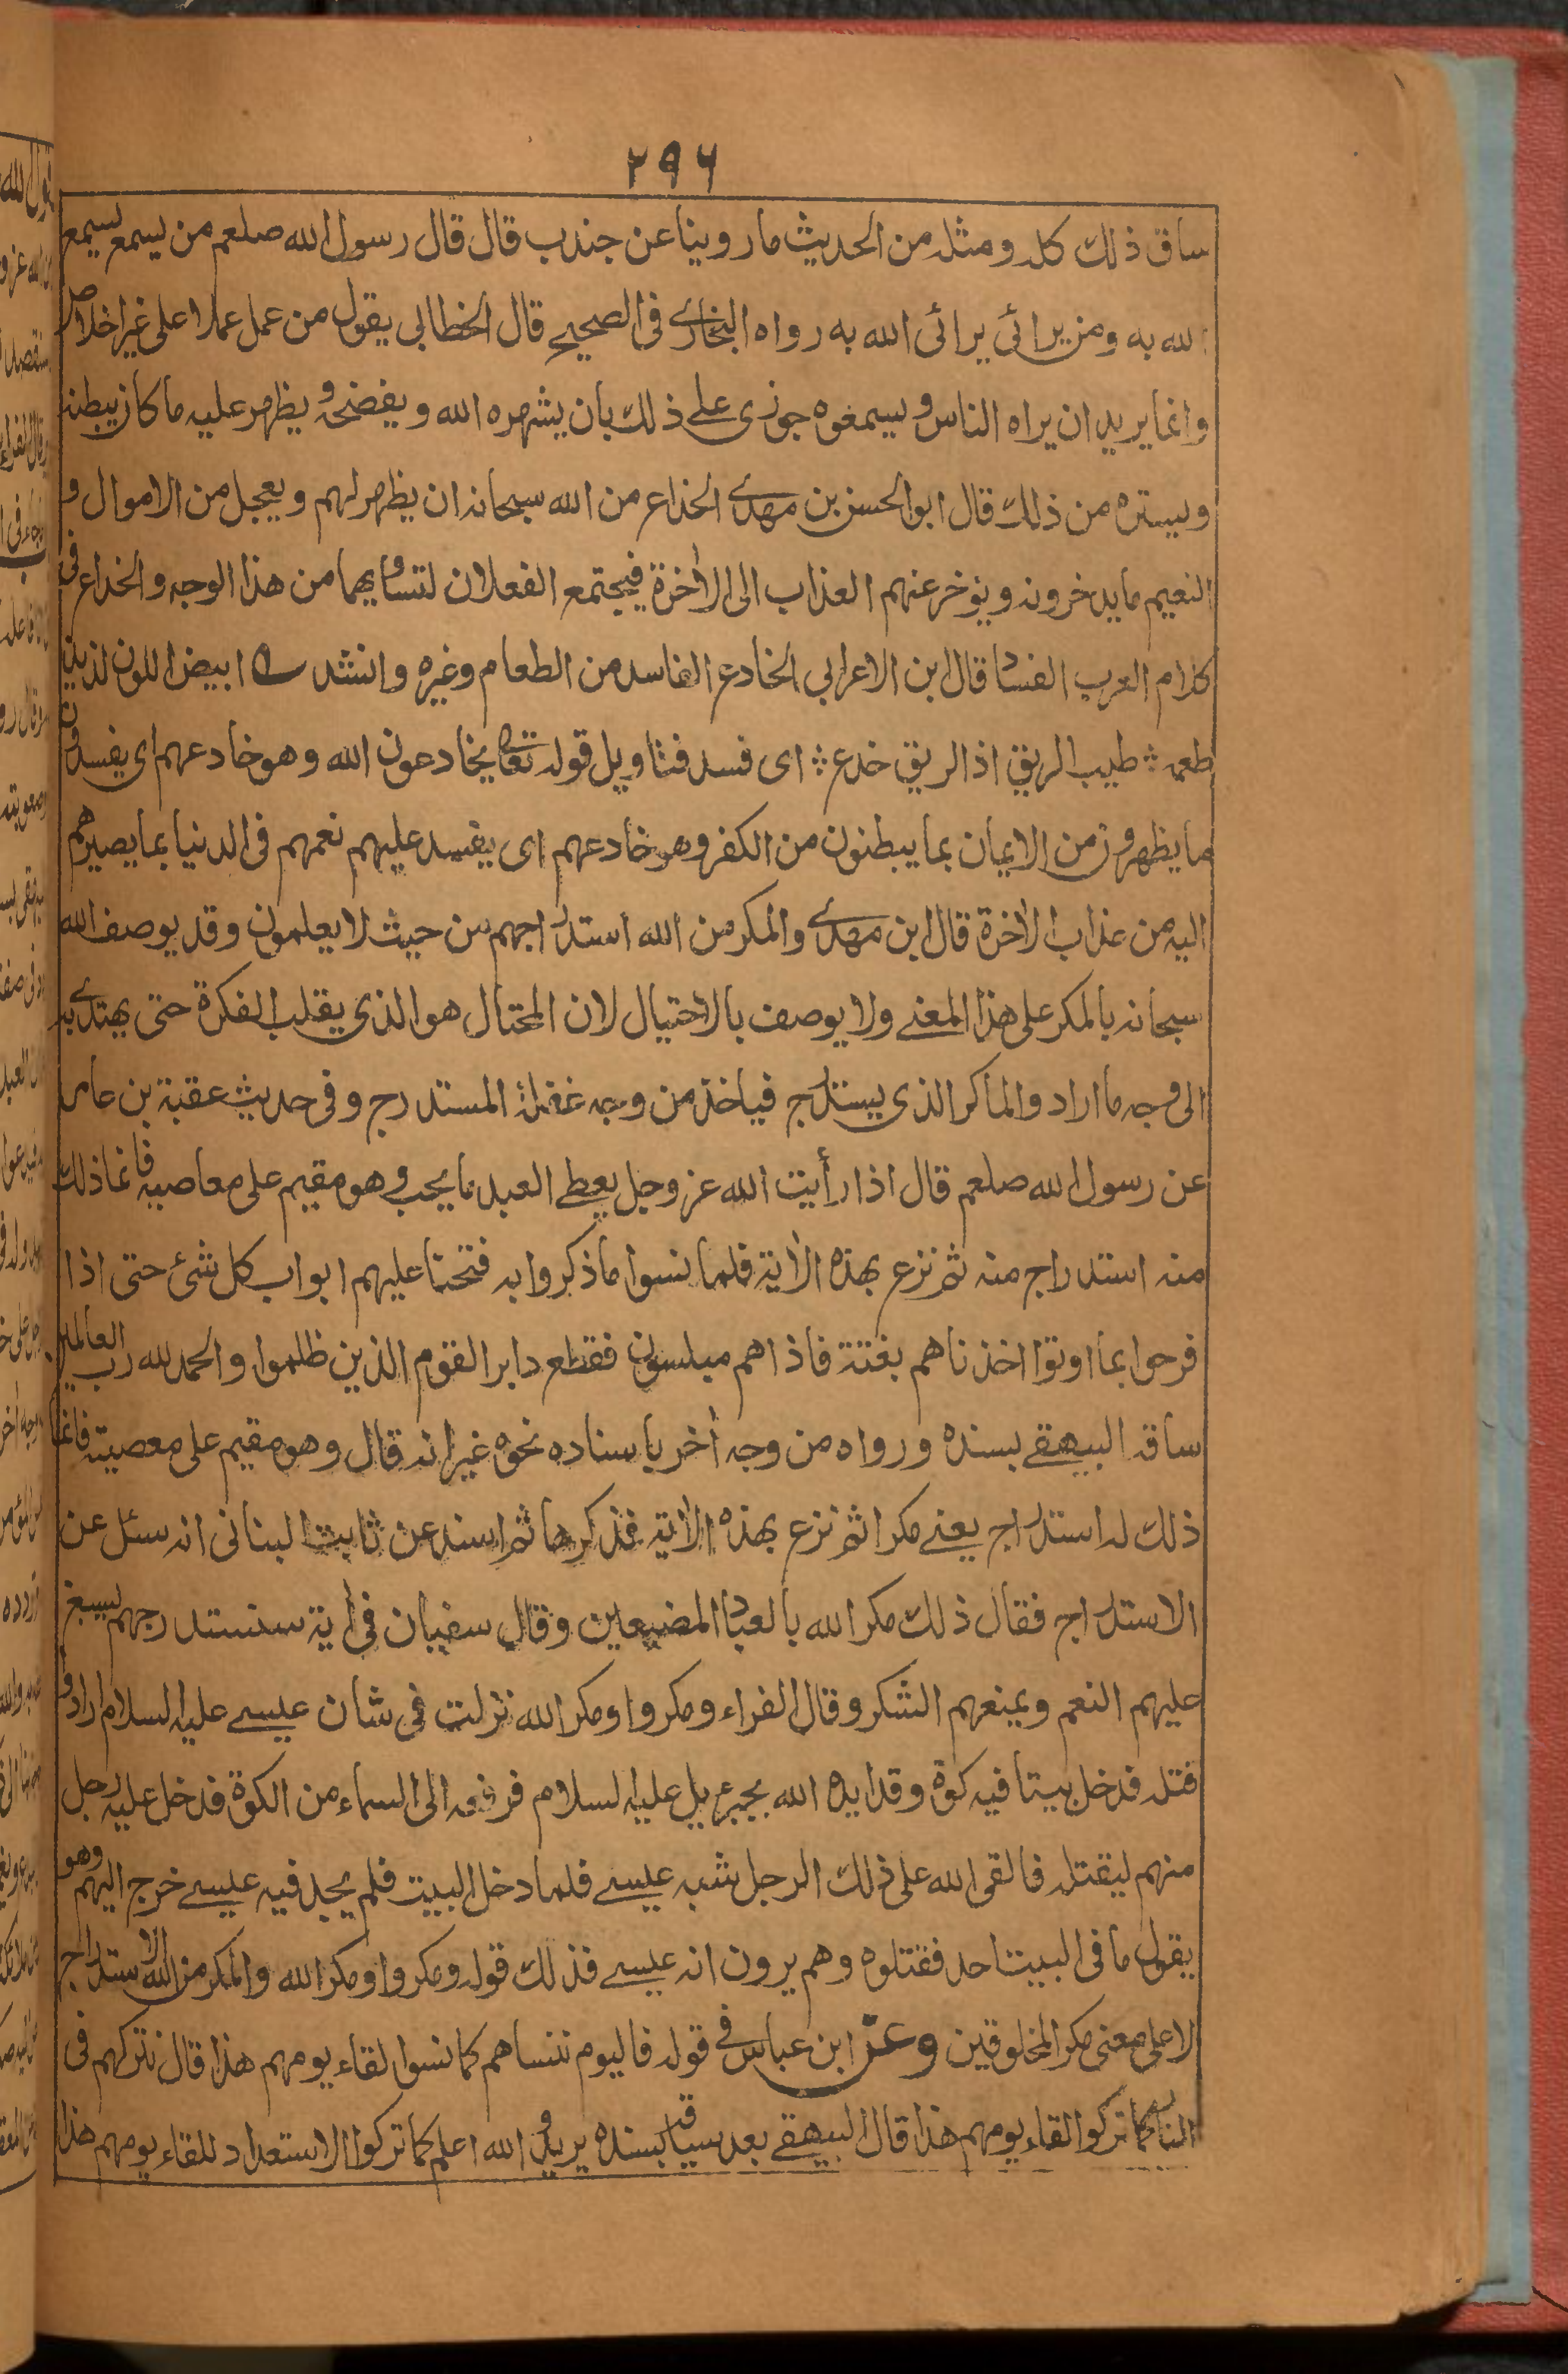 ٢٩٦
ساق ذلك كله ومثله من الحديث ما روينا عن جندب قال قال رسول الله صلعم من يسمع يسمع
الله به ومن يرائى يرائى الله به رواه البخارى فى الصحيح قال الخطابى يقول من عمل عملا على غير اخلاص
وانما يريد ان يراه الناس ويسمعوه جوزى على ذلك بان يشهره الله ويفضحه ويظهر عليه ما كان يبطنه
ويستره من ذلك قال ابو الحسن بن مهدى الخداع من الله سبحانه ان يظهر لهم ويعجل من الاموال و
النعيم ما يدخرونه ويؤخر عنهم العذاب الى الاخرة فيجتمع الفعلان لتساويهما من هذا الوجه والخداع فى
كلام العرب الفساد قال ابن الاعرابى الخادع الفاسد من الطعام وغيره وانشد ابيض اللون لذيذ
طعمه طيب الريق اذا الريق خدع اى فسد فتاويل قوله تعالى يخادعون الله وهو خادعهم اى يفسدون
ما يظهرون من الايمان بما يبطنون من الكفر وهو خادعهم اى يفسد عليهم نعمهم فى الدنيا بما يصيرهم
اليه من عذاب الاخرة قال ابن مهدى والمكر من الله استدراجهم من حيث لا يعلمون وقد يوصف الله
سبحانه بالمكر على هذا المعنى ولا يوصف بالاحتيال لان المحتال هو الذى يقلب الفكرة حتى يهتدى به
الى وجه ما اراد والماكر الذى يستدرج فياخذ من وجه غفلة المستدرج وفى حديث عقبة بن عامر
عن رسول الله صلعم قال اذا رأيت الله عز وجل يعطى العبد ما يحب وهو مقيم على معاصيه فانما ذلك
منه استدراج منه ثم نزع بهذه الاٰية فلما نسوا ما ذكروا به فتحنا عليهم ابواب كل شئ حتى اذا
فرحوا بما اوتوا اخذناهم بغتة فاذا هم مبلسون فقطع دابر القوم الذين ظلموا والحمد لله رب العالمين
ساقه البيهقى بسنده ورواه من وجه اٰخر باسناده نحوه غير انه قال وهو مقيم على معصيته فانما
ذلك له استدراج يعنى مكرا ثم نزع بهذه الاٰية فذكرها ثم اسند عن ثابت البنانى انه سئل عن
الاستدراج فقال ذلك مكر الله بالعباد المضيعين وقال سفيان فى اٰية سنستدرجهم نسبغ
عليهم النعم ويمنعهم الشكر وقال الفراء ومكروا ومكر الله نزلت فى شان عيسى عليه السلام ارادوا
قتله فدخل بيتا فيه كوة وقد ايده الله بجبرئيل عليه السلام فرفعه الى السماء من الكوة فدخل عليه رجل
منهم ليقتله فالقى الله على ذلك الرجل شبه عيسى فلما دخل البيت فلم يجد فيه عيسى خرج اليهم وهو
يقول ما فى البيت احد فقتلوه وهم يرون انه عيسى فذلك قوله ومكروا ومكر الله والمكر من الله الاستدراج
لا على معنى مكر المخلوقين وعن ابن عباس فى قوله فاليوم ننساهم كما نسوا لقاء يومهم هذا قال نتركهم فى
النار كما تركوا لقاء يومهم هذا قال البيهقى بعد سياقه بسنده يريد والله اعلم كما تركوا الاستعداد للقاء يومهم هذا